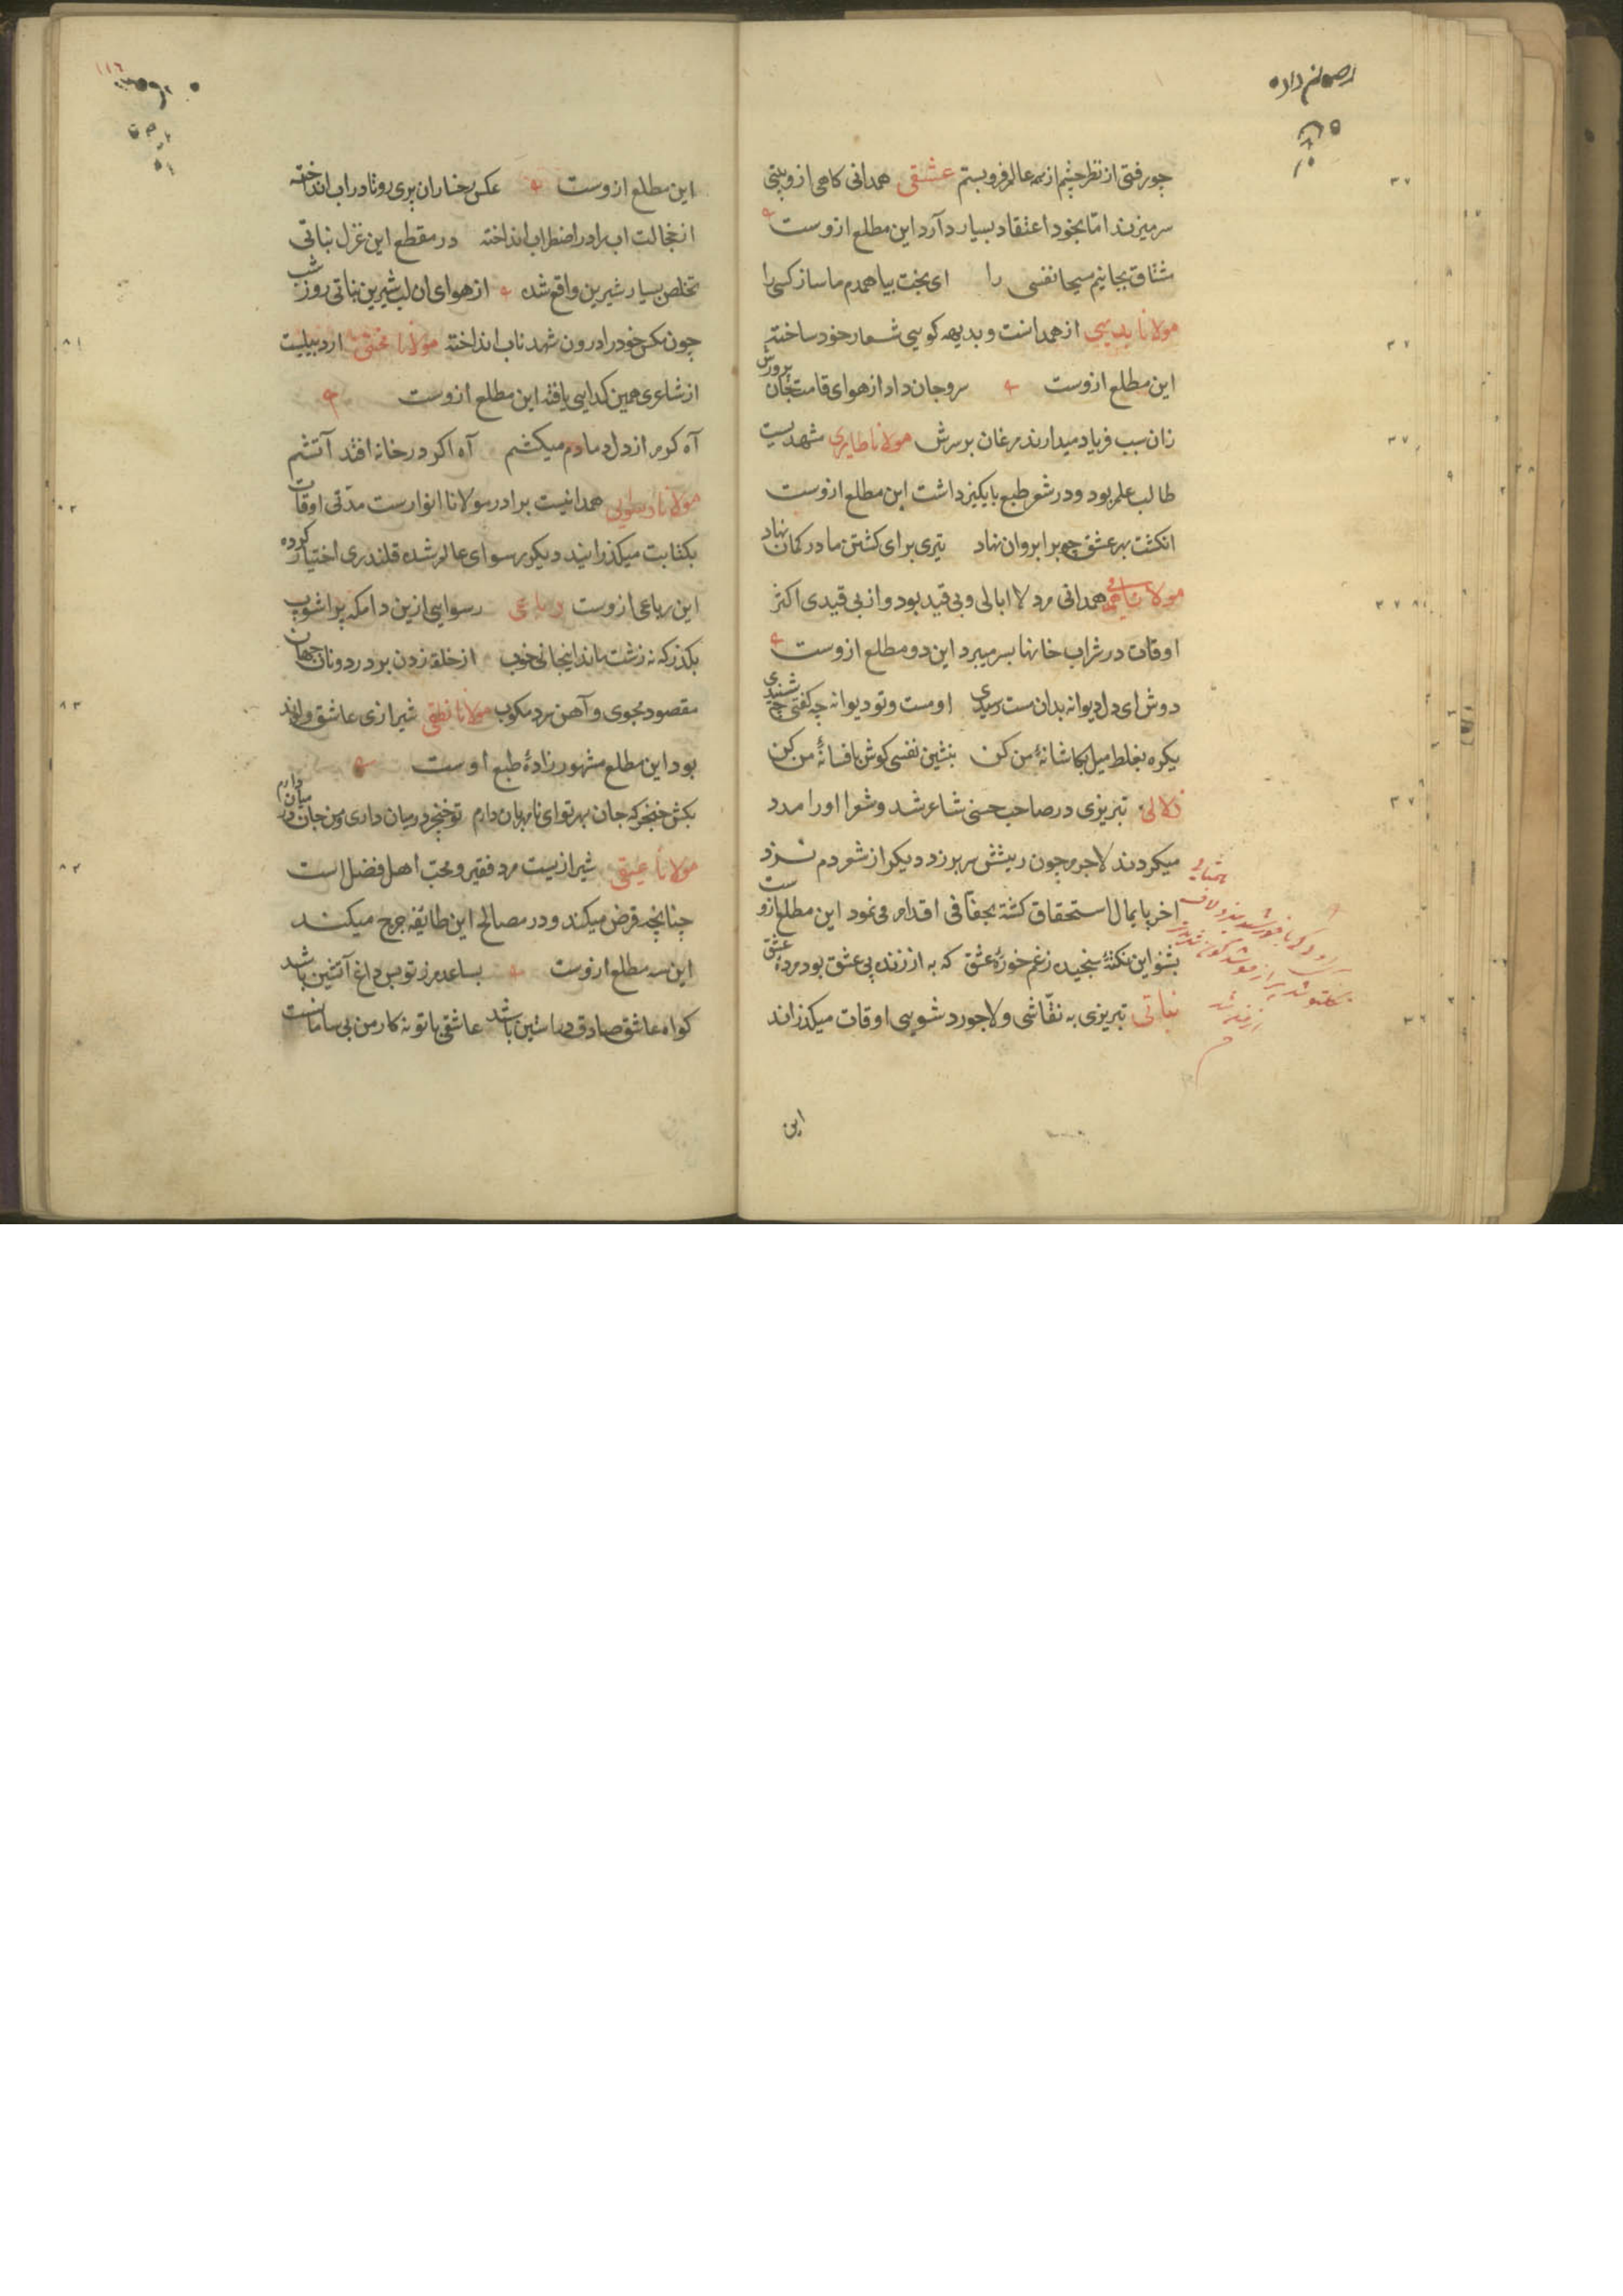 چو رفتی از نظر چشم از همه عالم فرو بستم عشقی همدانی کاهی ازو بیتی
سر میزند اما بخود اعتقاد بسیار دآرد این مطلع ازوست
مشتاق بجانیم مسیحا نفسی را ای بخت بیا همدم ما ساز کسی را
مولانا بدیهی از همدانست و بدیهه کویی شعار خود ساخته
این مطلع ازوست سرو جان داد از هوای قامت جان پرورش
زان سبب فریاد میدارند مرغان بر سرش مولانا طایری مشهدیست
طالب علم بود و در شعر طبع پاکیزه داشت این مطلع ازوست
انکشت بهر عشق چو بر ابروان نهاد تیری برای کشتن ما در کمان نهاد
مولانا همدانی مرد لا ابالی و بی قید بود و از بی قیدی اکثر
اوقات در شراب خانها بسر میبرد این دو مطلع ازوست
دوش ای دل دیوانه بدان مست رسیدی او مست و تو دیوانه چه کفتی چه شنیدی
یکره بغلط میل بکاشانهٔ من کن بنشین نفسی کوش بافسانهٔ من کن
زلالی تبریزی در صاحب حسنی شاعر شد و شعرا اورا مدد
میکردند لاجرم چون ریشش سر بر زد دیکر از شعر دم نزد
اخر پایمال استحقاق کشته بجفافی اقدام می نمود این مطلع ازوست
بشنو این نکتهٔ سنجیده زغم خوردهٔ عشق که به از زندهٔ بی عشق بود مردهٔ عشق
نباتی تبریزی به نقاشی و لاجورد شویی اوقات میکذراند
این
۱۱۶
این مطلع ازوست عکس رخسار ان پری رو تا در اب انداخته
از خجالت اب را در اضطراب انداخته در مقطع این غزل نباتی
تخلص بسیار شیرین واقع شده از هوای ان لب شیرین نباتی روز و شب
چون مکس خود را درون شهد ناب انداخته مولانا اردبیلیست
از شاعری همین کدایی یافته این مطلع ازوست
آه کرم از دل دمادم میکشم آه اکر در خانه افتد آتشم
مولانا همدانیست برادر مولانا انوارست مدتی اوقات
بکتابت میکذرانید دیکر رسوای عالم شده قلندری اختیار کرده
این رباعی ازوست رباعی رسوایی ازین دامکه پراشوب
بکذر که نه زشت ماند اینجا نی خوب از حلقه زدن بر در دونان جهان
مقصود مجوی و آهن سرد مکوب مولانا نطقی شیرازی عاشق و
بود این مطلع مشهور زادهٔ طبع اوست
بکش خنجر که جان بهر تو ای نامهربان دارم تو خنجر در میان داری و من جان در میان دارم
مولانا شیرازیست مرد فقیر و محب اهل فضل است
چنانچه قرض میکند و در مصالح این طایفه خرج میکند
این سه مطلع ازوست بساعدم ز تو بس داغ آتشین باشد
کواه عاشق صادق در استین باشد عاشقی با تو نه کار من بی سامانست